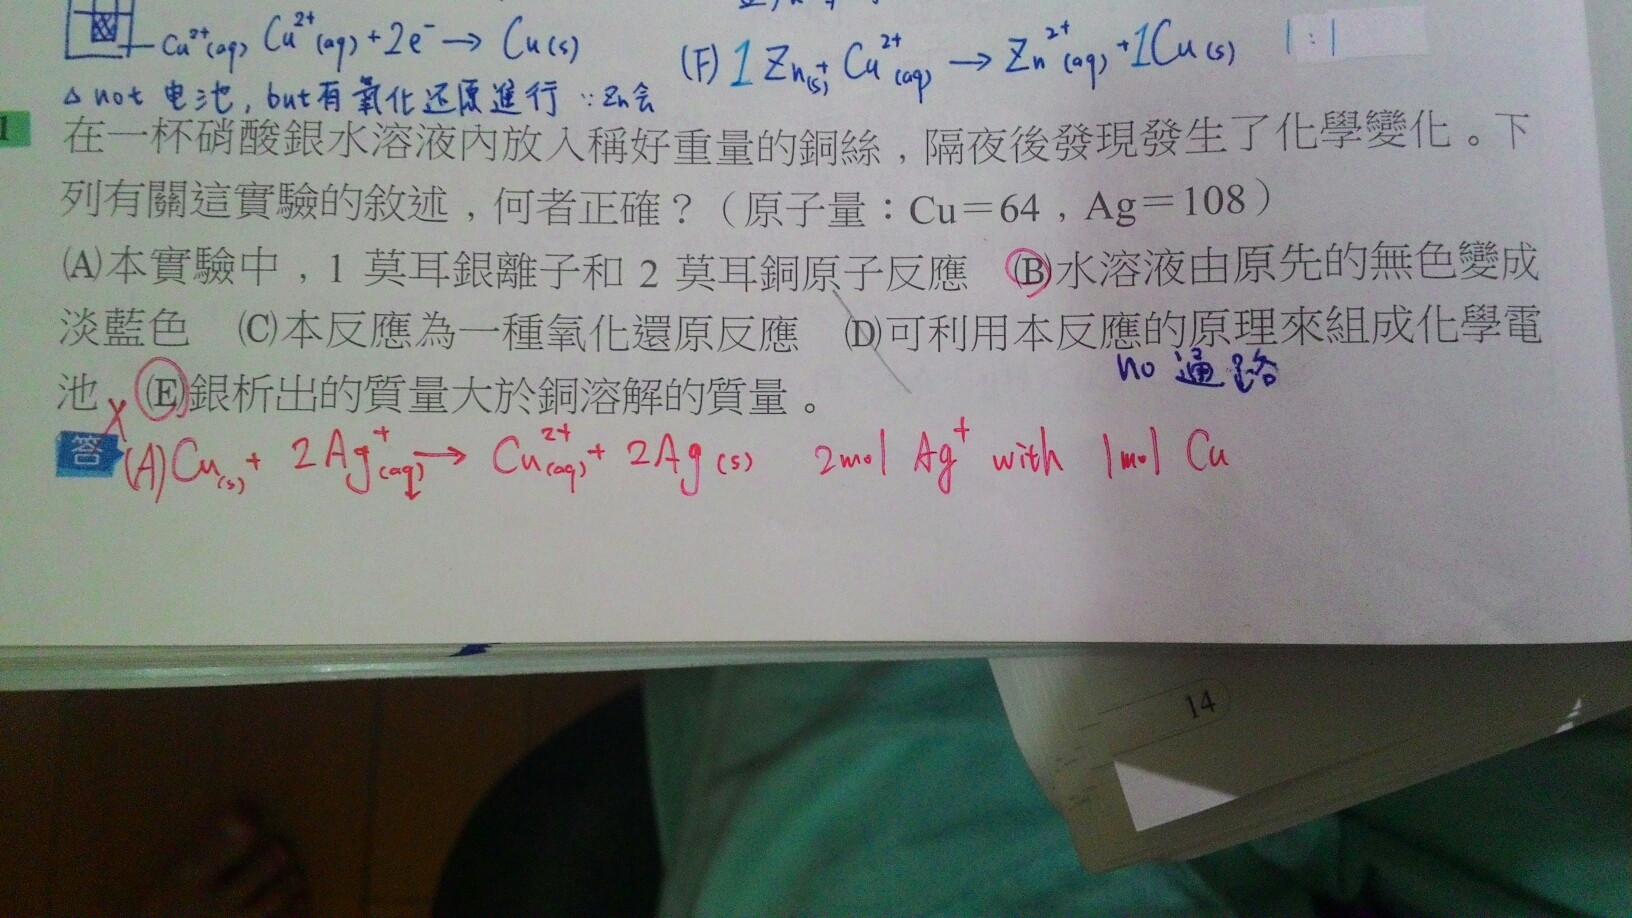 Cu²⁺(aq) Cu²⁺(aq)+2e⁻→Cu(s)
(F) 1Zn(s)+Cu²⁺(aq)→Zn²⁺(aq)+1Cu(s) 1:1
△ not 电池, but有氧化还原進行 ∵Zn会
1 在一杯硝酸銀水溶液內放入稱好重量的銅絲，隔夜後發現發生了化學變化。下
列有關這實驗的敘述，何者正確？（原子量：Cu＝64，Ag＝108）
(A)本實驗中，1 莫耳銀離子和 2 莫耳銅原子反應 (B)水溶液由原先的無色變成
淡藍色 (C)本反應為一種氧化還原反應 (D)可利用本反應的原理來組成化學電
no 通路
池 (E)銀析出的質量大於銅溶解的質量。
答 (A)Cu(s)+2Ag⁺(aq)→Cu²⁺(aq)+2Ag(s) 2mol Ag⁺ with 1mol Cu
14